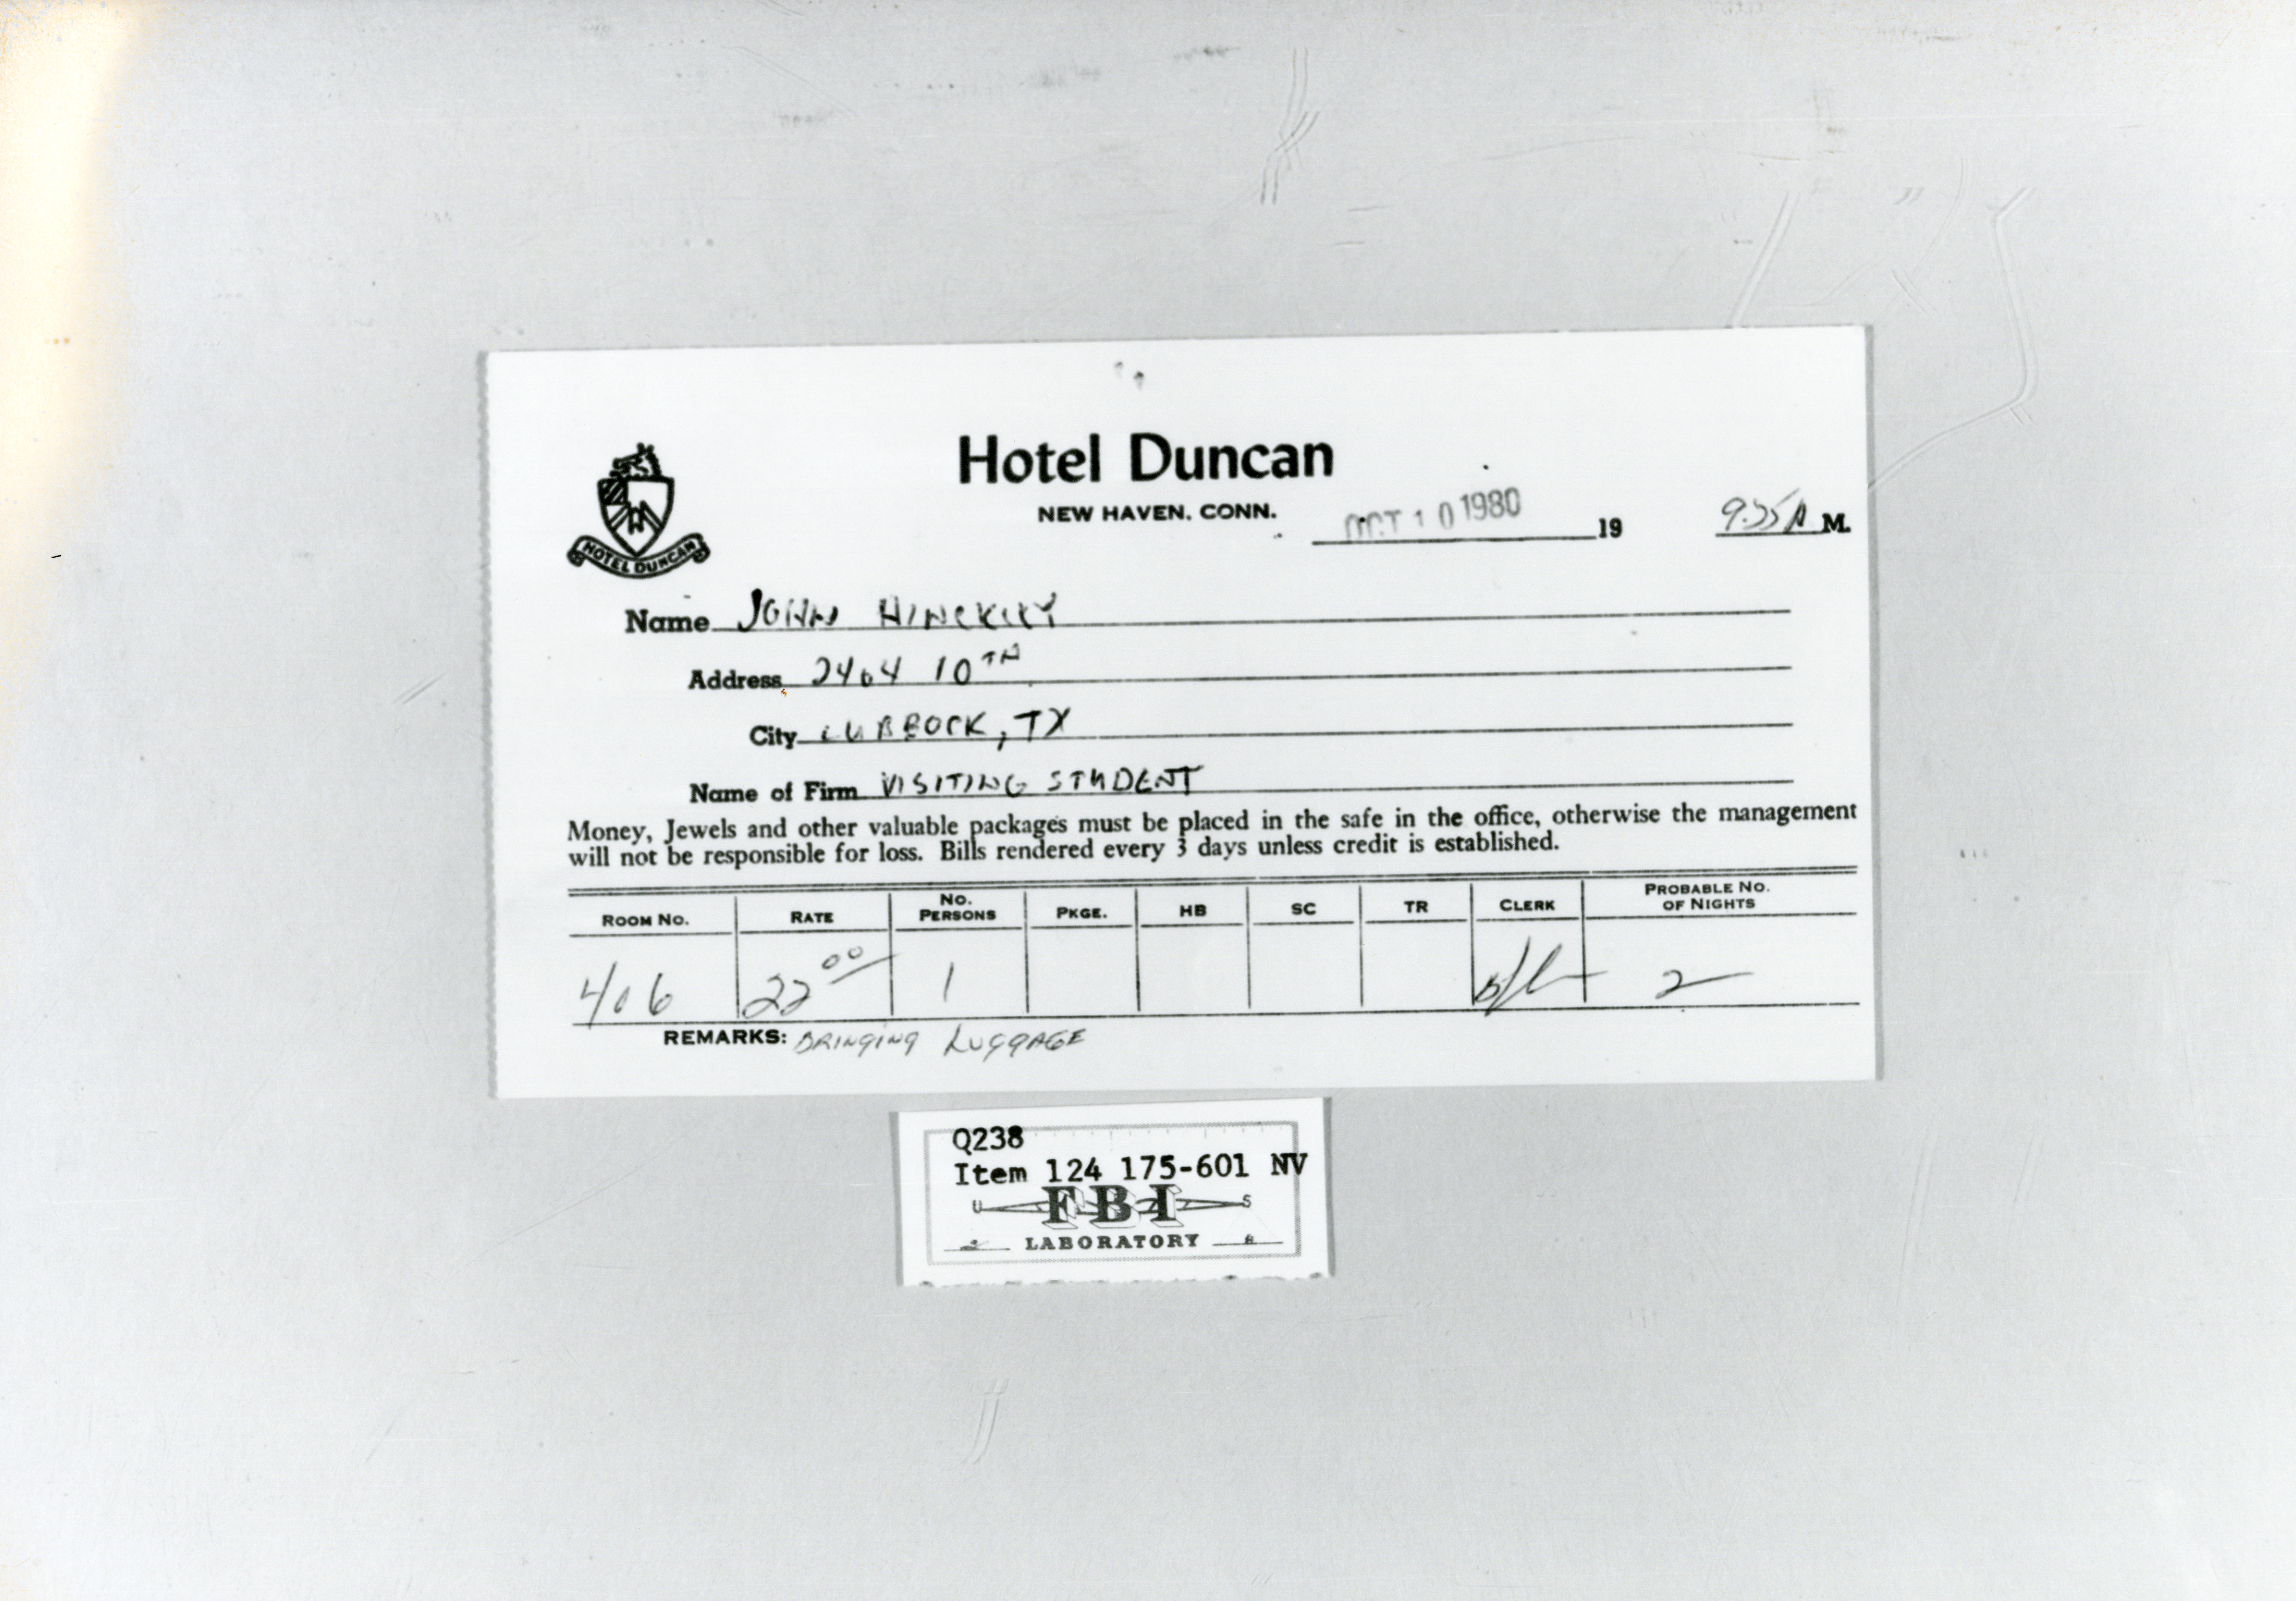 Hotel Duncan
NEW HAVEN, CONN.
OCT 10 1980 19 9:55 A M.
HOTEL DUNCAN
Name JOHN HINCKLEY
Address 2404 10TH
City LUBBOCK, TX
Name of Firm VISITING STUDENT
Money, Jewels and other valuable packages must be placed in the safe in the office, otherwise the management
will not be responsible for loss. Bills rendered every 3 days unless credit is established.
ROOM NO. RATE NO. PERSONS PKGE. HB SC TR CLERK PROBABLE NO. OF NIGHTS
406 22 00 1 2
REMARKS: BRINGING LUGGAGE
Q238
Item 124 175-601 NV
U FBI S
LABORATORY